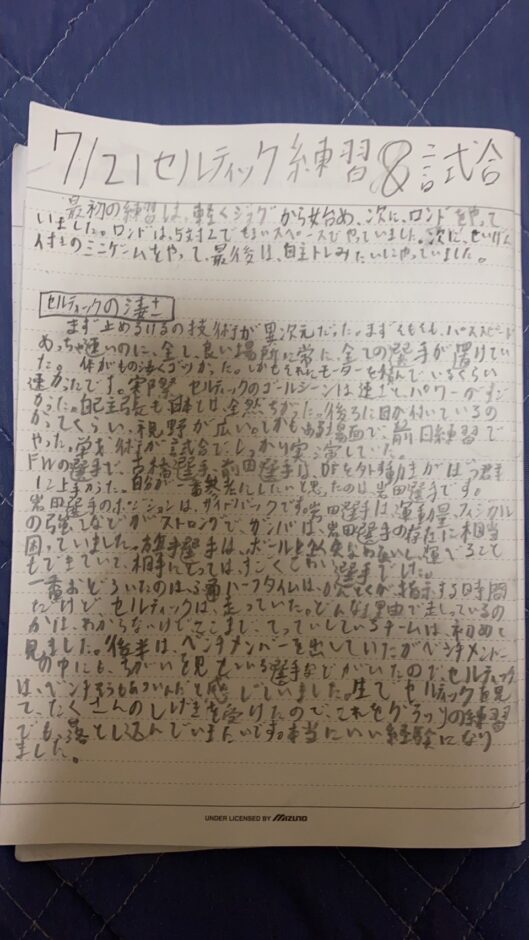 7/21 セルティック練習&試合
最初の練習は、軽くジョグから始め、次に、ロンドをやって
いました。ロンドは、5対2でせまいスペースでやっていました。次に、せいげん
付きのミニゲームをやって、最後は、自主トレみたいにやっていました。
セルティックの凄さ
まず止めるけるの技術が異次元だった。まずそもそも、パススピード
めっちゃ速いのに、全て、良い場所に常に、全ての選手が置けてい
た。体がもの凄くゴツかった。しかもそれにモーターを積んでいるぐらい
速かったです。実際 セルティックのゴールシーンは速さと、パワーがすご
かった。自己主張も日本とは、全然ちがった。後ろに目が付いているの
かってくらい、視野が広い。しかもある場面で、前日練習で
やった、戦術が試合で、しっかり実
FWの選手で、古橋選手、前田選手は、DFを外す動きがはつ君
に上手かった。自分が一番参考にしたいと思ったのは岩田選手です。
岩田選手のポジションは、サイドバックです。岩田選手は運動量、フィジカル
の強さなどがストロングでガンバは、岩田選手の存在に相当
困っていました。旗手選手は、ボールを失わないし、運べること
もできていて、相手にとっては、すごくこわい選手でした。
一番おどろいたのは、ハーフタイムは、かんとくが指示する時間
だけど、セルティックは走っていた。どんな理由で走っているの
かは、わからないけどここまで、てっていしているチームは、初めて
見ました。後半は、ベンチメンバーを出していたがベンチメンバー
の中にも、ちがいを見せている選手などがいたので、セルティック
は、ベンチそうもあついんだと感じていました。生で、セルティックを見
て、たくさんのしげきを受けたので、これをグラッソの練習
でも、落とし込んでいきたいです。本当にいい経験になり
ました。
UNDER LICENSED BY MIZUNO